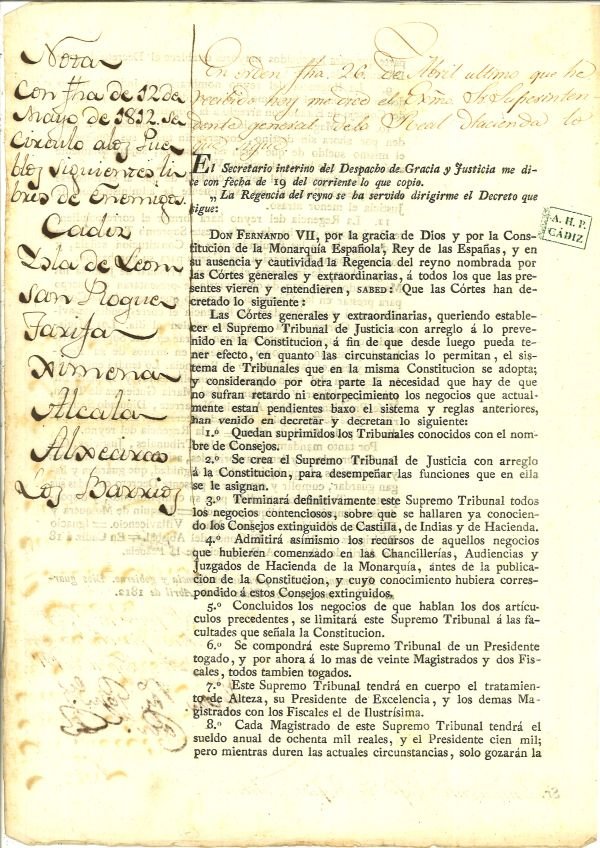 Nota
Con fha de 12 de
Mayo de 1812. se
circulo a los Pue
blos siguientes li
bres de Enemigos.
Cadiz
Ysla de Leon
San Roque
Tarifa
Ximena
Alcala
Alxeciras
Los Barrios
En orden fha. 26 de Abril ultimo que he
recibido hoy me dice el Exmo. Sr. Superinten
dente general de la Real Hacienda lo
que sigue
El Secretario interino del Despacho de Gracia y Justicia me di-
ce con fecha de 19 del corriente lo que copio.
„ La Regencia del reyno se ha servido dirigirme el Decreto que
sigue:
A. H. P.
CÁDIZ
DON FERNANDO VII, por la gracia de Dios y por la Cons-
titucion de la Monarquía Española, Rey de las Españas, y en
su ausencia y cautividad la Regencia del reyno nombrada por
las Córtes generales y extraordinarias, á todos los que las pre-
sentes vieren y entendieren, SABED: Que las Córtes han de-
cretado lo siguiente:
Las Córtes generales y extraordinarias, queriendo estable-
cer el Supremo Tribunal de Justicia con arreglo á lo preve-
nido en la Constitucion, á fin de que desde luego pueda te-
ner efecto, en quanto las circunstancias lo permitan, el sis-
tema de Tribunales que en la misma Constitucion se adopta;
y considerando por otra parte la necesidad que hay de que
no sufran retardo ni entorpecimiento los negocios que actual-
mente estan pendientes baxo el sistema y reglas anteriores,
han venido en decretar y decretan lo siguiente:
1.º Quedan suprimidos los Tribunales conocidos con el nom-
bre de Consejos.
2.º Se crea el Supremo Tribunal de Justicia con arreglo
á la Constitucion, para desempeñar las funciones que en ella
se le asignan.
3.º Terminará definitivamente este Supremo Tribunal todos
los negocios contenciosos, sobre que se hallaren ya conocien-
do los Consejos extinguidos de Castilla, de Indias y de Hacienda.
4.º Admitirá asimismo los recursos de aquellos negocios
que hubieren comenzado en las Chancillerías, Audiencias y
Juzgados de Hacienda de la Monarquía, ántes de la publica-
cion de la Constitucion, y cuyo conocimiento hubiera corres-
pondido á estos Consejos extinguidos.
5.º Concluidos los negocios de que hablan los dos artícu-
culos precedentes, se limitará este Supremo Tribunal á las fa-
cultades que señala la Constitucion.
6.º Se compondrá este Supremo Tribunal de un Presidente
togado, y por ahora á lo mas de veinte Magistrados y dos Fis-
cales, todos tambien togados.
7.º Este Supremo Tribunal tendrá en cuerpo el tratamien-
to de Alteza, su Presidente de Excelencia, y los demas Ma-
gistrados con los Fiscales el de Ilustrísima.
8.º Cada Magistrado de este Supremo Tribunal tendrá el
sueldo anual de ochenta mil reales, y el Presidente cien mil;
pero mientras duren las actuales circunstancias, solo gozarán la